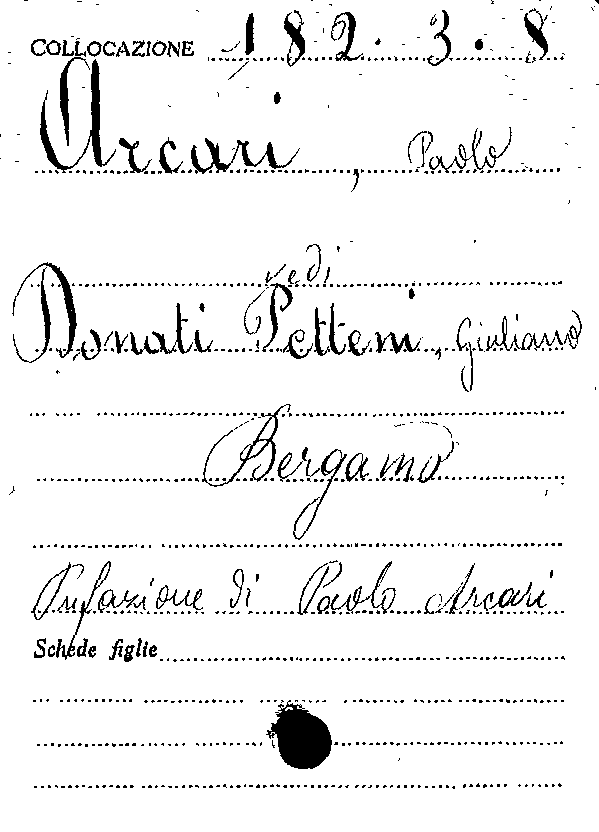 COLLOCAZIONE 182.3.8
Arcari, Paolo
vedi
Donati Petteni, Giuliano
Bergamo
Prefazione di Paolo Arcari
Schede figlie